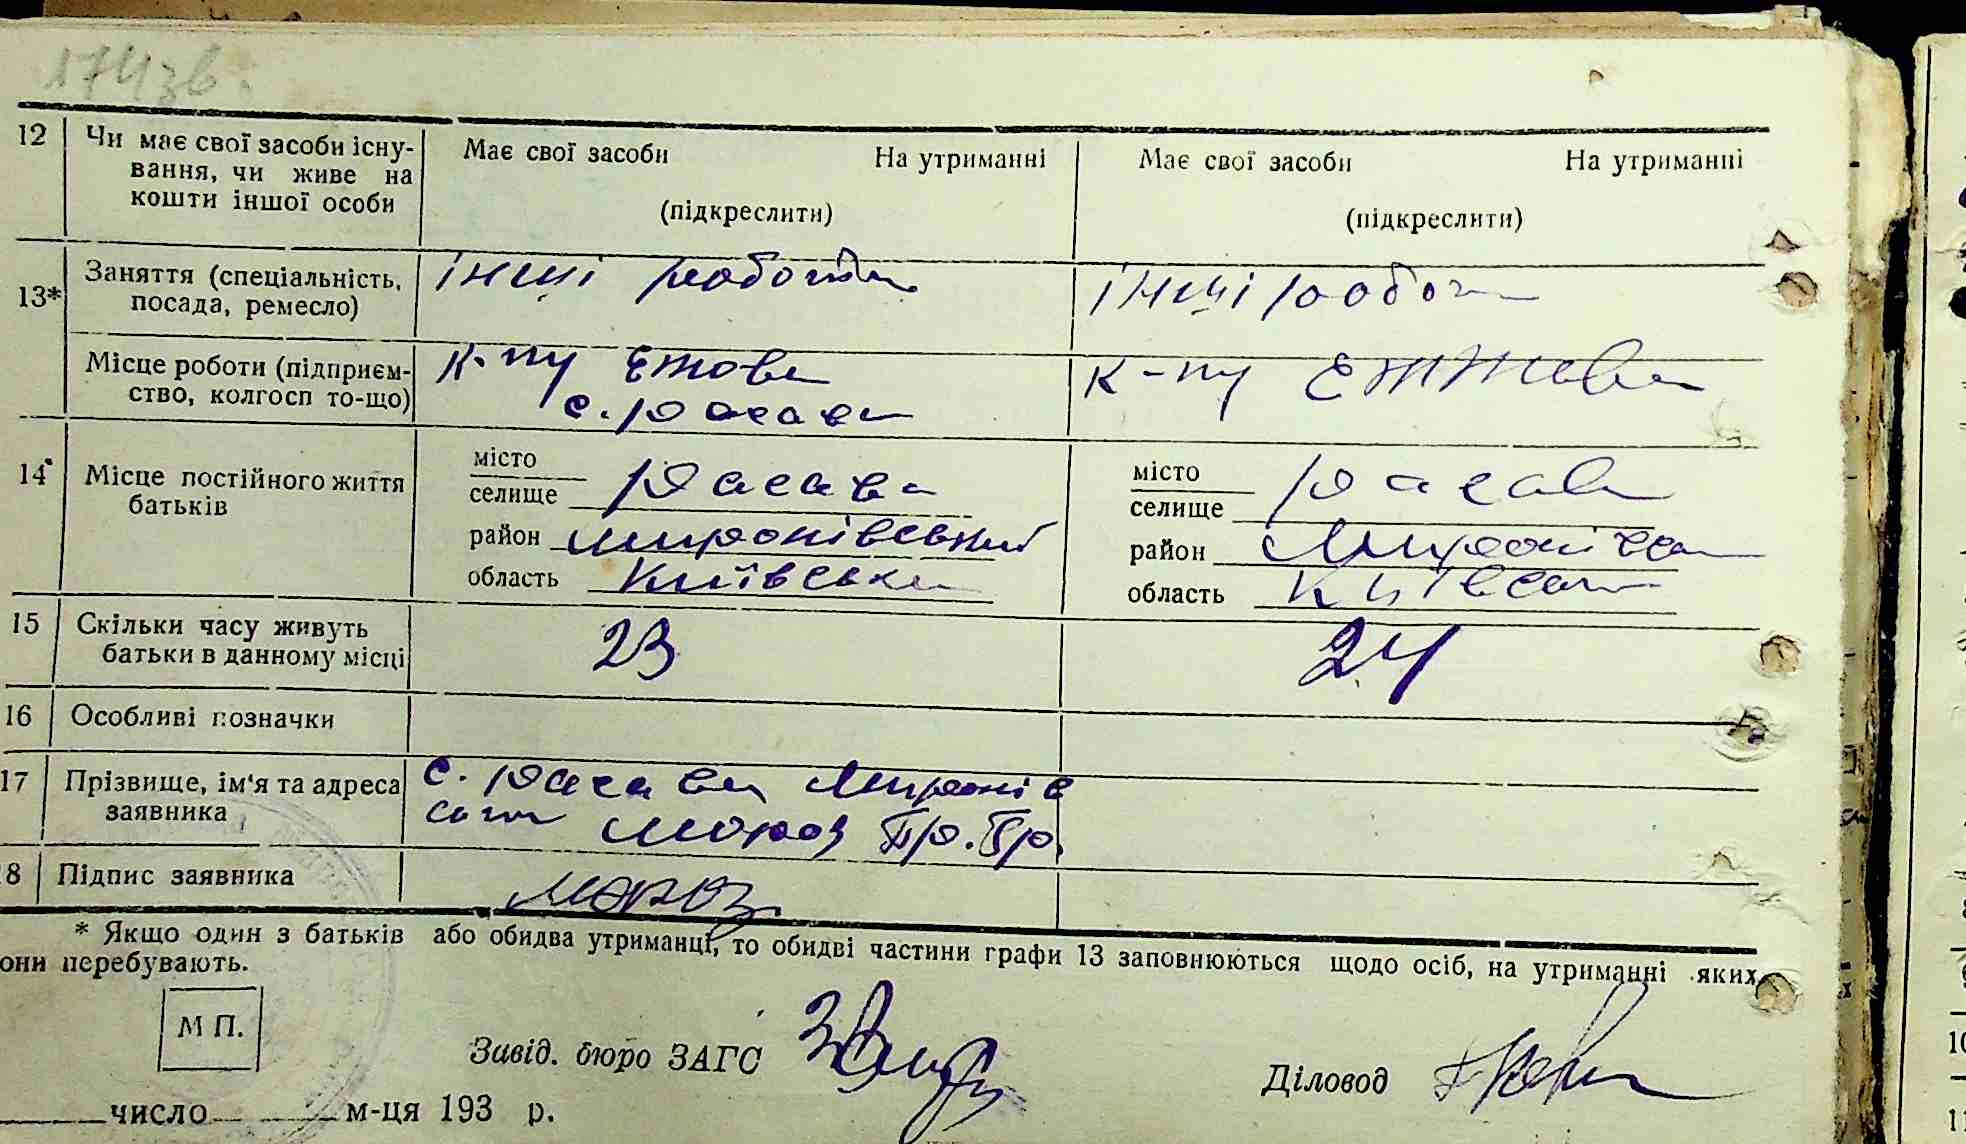 174зв.
12 Чи має свої засоби існу- Має свої засоби На утриманні Має свої засоби На утриманні
вання, чи живе на
кошти іншої особи (підкреслити) (підкреслити)
13* Заняття (спеціальність, інші роботи інші робот
посада, ремесло)
Місце роботи (підприєм- к-пу Ежова к-пу Ежжова
ство, колгосп то-що) с. Росава
14* Місце постійного життя місто Росава місто Росав
батьків селище селище
район Миронівський район Миронівсь
область Київська область Київськ
15 Скільки часу живуть 23 24
батьки в данному місці
16 Особливі позначки
17 Прізвище, ім'я та адреса с. Росава Миронів
заявника ськи Мороз Гр. Гр.
8 Підпис заявника Мороз
* Якщо один з батьків або обидва утриманці, то обидві частини графи 13 заповнюються щодо осіб, на утриманні яких
они перебувають.
М П.
Завід. бюро ЗАГС Діловод
число м-ця 193 р.